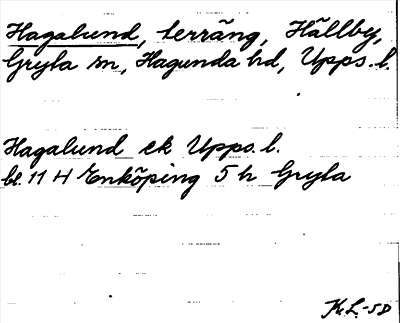 Hagalund, terräng, Hällby,
Gryta sn, Hagunda hd, Upps. l.
Hagalund ek Upps. l.
bl. 11 H Enköping 5 h Gryta
K.L.-50